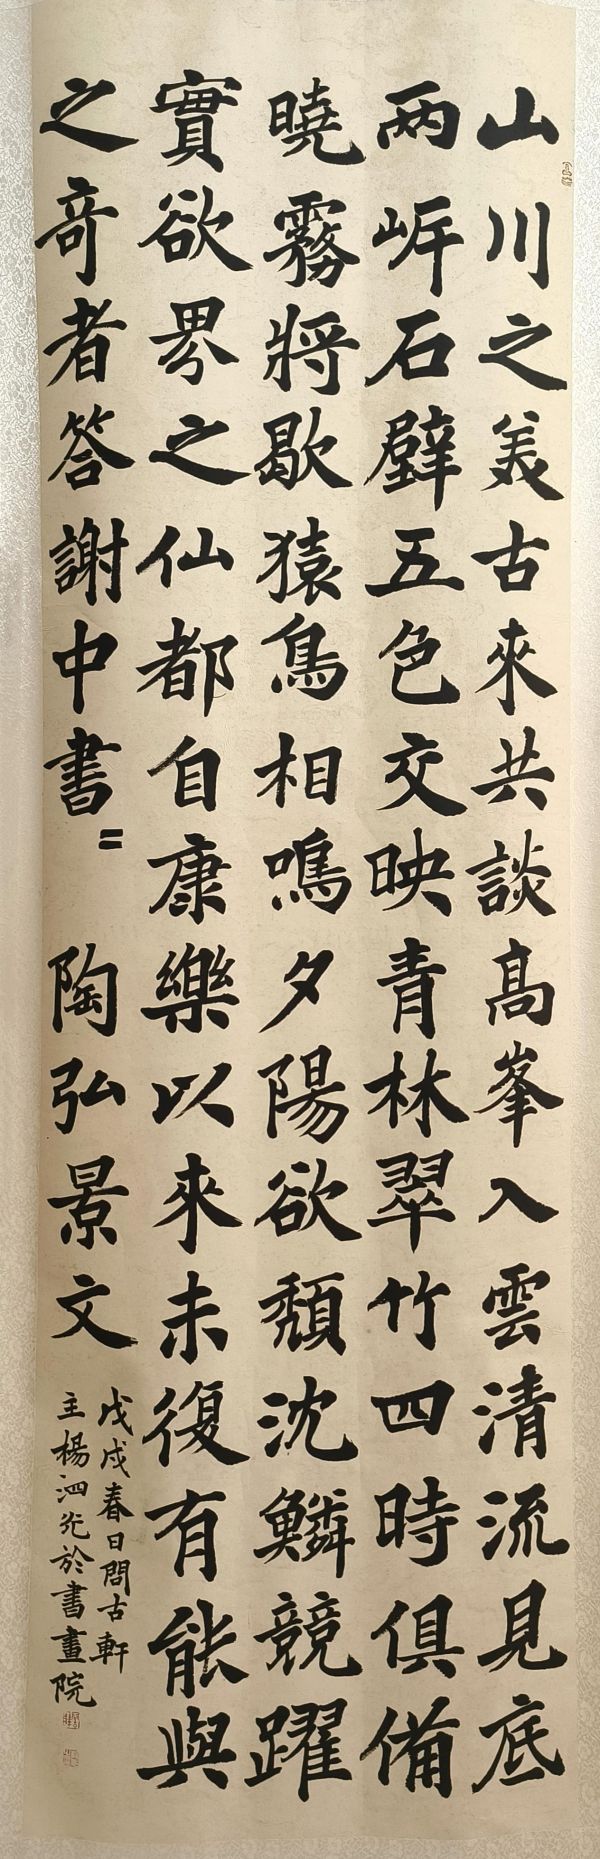 山川之美古來共談髙峯入雲清流見底
兩岸石壁五色交映青林翠竹四時俱備
曉霧將歇猿鳥相鳴夕陽欲頹沈鱗競躍
實欲界之仙都自康樂以來未復有能與
之奇者答謝中書〻 陶弘景文
戊戌春日問古軒
主楊泗光於書畫院